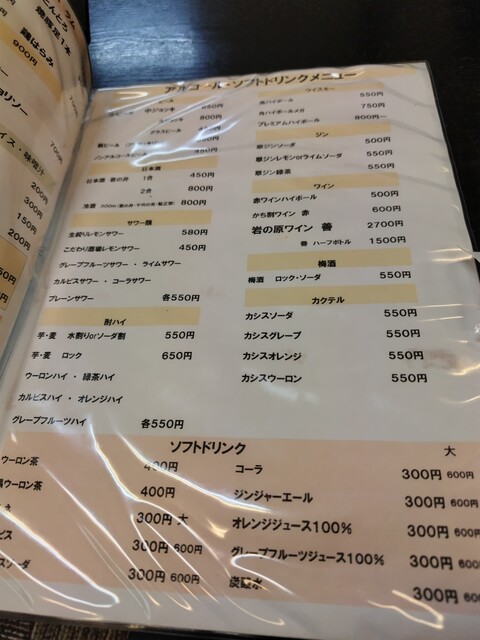 ラム
900円
鶏はらみ
200円
300円
150円
200円
アルコール・ソフトドリンクメニュー
ビール
中ジョッキ
800円
グラスビール
ノンアルコール
450円
日本酒
日本酒 岩の井 1合 450円
2合 800円
冷酒 800円
サワー類
生絞りレモンサワー 580円
こだわり酒場レモンサワー 450円
グレープフルーツサワー ・ ライムサワー
カルピスサワー ・ コーラサワー
プレーンサワー 各550円
酎ハイ
芋・麦 水割りorソーダ割 550円
芋・麦 ロック 650円
ウーロンハイ ・ 緑茶ハイ
カルピスハイ ・ オレンジハイ
グレープフルーツハイ 各550円
ウイスキー
角ハイボール 550円
角ハイボールメガ 750円
プレミアムハイボール 800円~
ジン
翠ジンソーダ 500円
翠ジンレモンorライムソーダ 550円
翠ジン緑茶 550円
ワイン
赤ワインハイボール 500円
かち割ワイン 赤 600円
岩の原ワイン 善 2700円
善 ハーフボトル 1500円
梅酒
梅酒 ロック・ソーダ 550円
カクテル
カシスソーダ 550円
カシスグレープ 550円
カシスオレンジ 550円
カシスウーロン 550円
ソフトドリンク 大
ウーロン茶 400円
ウーロン茶 400円
300円 大
ピス 300円 600円
スソーダ 300円 600円
コーラ 300円 600円
ジンジャーエール 300円 600円
オレンジジュース100% 300円 600円
グレープフルーツジュース100% 300円 600円
炭酸水 300円 600円